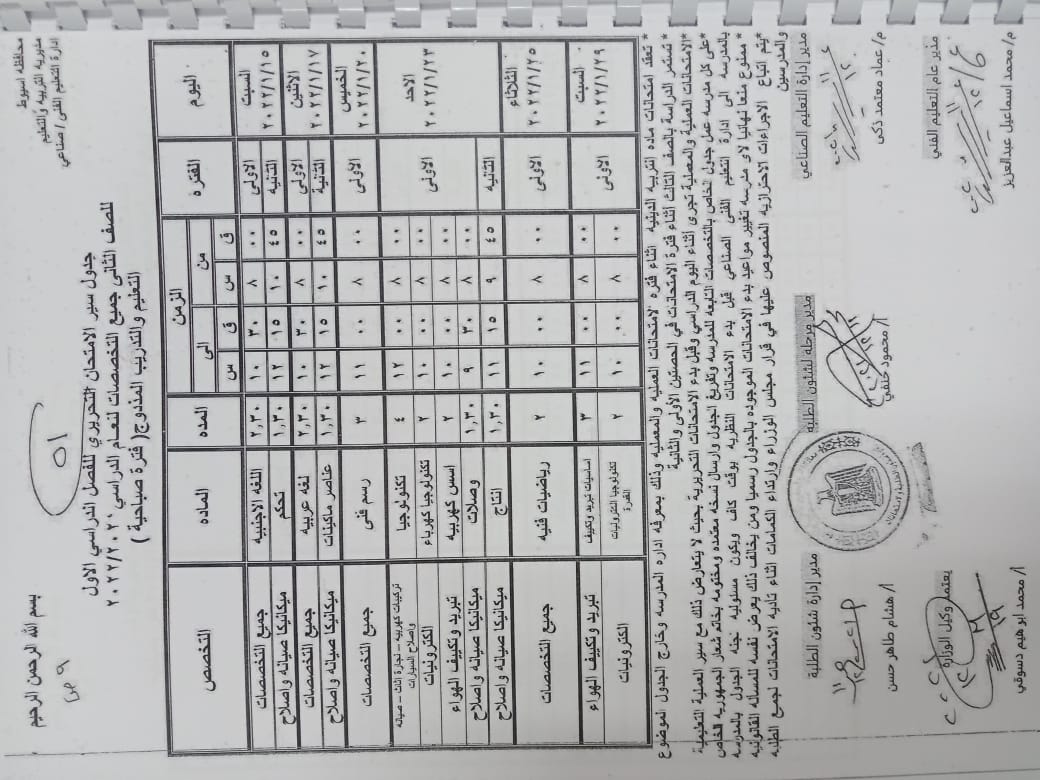 بسم الله الرحمن الرحيم
محافظه اسيوط
مديرية التربيه والتعليم
ادارة التعليم الفنى / صناعي
جدول سير الامتحان التحريري للفصل الدراسي الاول
للصف الثانى جميع التخصصات للعام الدراسي ٢٠٢٢/٢٠٢٠
التعليم والتدريب المذدوج( فترة صباحية )
اليوم الفتره الزمن المده الماده التخصص
من الى
ق س ق س
السبت ٢٠٢٢/١/١٥ الاولى ٠٠ ٨ ٣٠ ١٠ ٢,٣٠ اللغه الاجنبيه جميع التخصصات
الثانية ٤٥ ١٠ ١٥ ١٢ ١,٣٠ تحكم ميكانيكا صيانه واصلاح
الاثنين ٢٠٢٢/١/١٧ الاولى ٠٠ ٨ ٣٠ ١٠ ٢,٣٠ لغه عربيه جميع التخصصات
الثانية ٤٥ ١٠ ١٥ ١٢ ١,٣٠ عناصر ماكينات ميكانيكا صيانه واصلاح
الخميس ٢٠٢٢/١/٢٠ الأولى ٠٠ ٨ ٠٠ ١١ ٣ رسم فنى جميع التخصصات
الاحد ٢٠٢٢/١/٢٣ الأولى ٠٠ ٨ ٠٠ ١٢ ٤ تكنولوجيا تركيبات كهربيه – نجارة اثاث – صيانه واصلاح السيارات
٠٠ ٨ ٠٠ ١٠ ٢ تكنولوجيا كهرباء الكترونيات
٠٠ ٨ ٠٠ ١٠ ٢ اسس كهربيه تبريد وتكييف الهواء
٠٠ ٨ ٣٠ ٩ ١,٣٠ وصلات ميكانيكا صيانه واصلاح
الثانيه ٤٥ ٩ ١٥ ١١ ١,٣٠ انتاج ميكانيكا صيانه واصلاح
الثلاثاء ٢٠٢٢/١/٢٥ الأولى ٠٠ ٨ ٠٠ ١٠ ٢ رياضيات فنيه جميع التخصصات
السبت ٢٠٢٢/١/٢٩ الأولى ٠٠ ٨ ٠٠ ١١ ٣ اساسيات تبريد وتكييف تبريد وتكييف الهواء
٠٠ ٨ ٠٠ ١٠ ٢ تكنولوجيا الكترونيات القدرة الكترونيات
* تعقد امتحانات ماده التربيه الدينيه اثناء فتره الامتحانات العمليه والمعمليه وذلك بمعرفه اداره المدرسه وخارج الجدول الموضوع
* تستمر الدراسة بالصف الثالث اثناء فترة الامتحانات في الحصتين الأولى والثانية
*الامتحانات العملية والمعملية تجرى أثناء اليوم الدراسي وقبل بدء الامتحانات التحريرية بحيث لا يتعارض ذلك مع سير العملية التعليمية
*على كل مدرسه عمل جدول الخاص بالتخصصات التابعه للمدرسه وتفريغ الجدول وارسال نسخه معتمده ومختومه بخاتم شعار الجمهوريه الخاص
بالمدرسه الى ادارة التعليم الفنى الصناعي قبل بدء الامتحانات النظريه بوقت كاف ويكون مسئوليه لجنه الجدول بالمدرسه
* ممنوع منعا نهائيا لاى مدرسه تغيير مواعيد بدء الامتحانات الموجوده بالجدول رسميا ومن يخالف ذلك يعرض نفسه للمسأله القانونيه
*يتم اتباع الاجراءات الاحترازيه المنصوص عليها في قرار مجلس الوزراء وارتداء الكمامات اثناء تأديه الامتحانات لجميع الطلبه
والمدرسين
مدير إدارة شئون الطلبة
أ/ هشام طاهر حسن
مدير مرحلة لشئون الطلبه
أ/ محمود حنفي
مدير إدارة التعليم الصناعي
م/ عماد معتمد ذكى
يعتمد وكيل الوزارة
أ/ محمد ابراهيم دسوقي
مدير عام التعليم الفني
م/ محمد اسماعيل عبدالعزيز